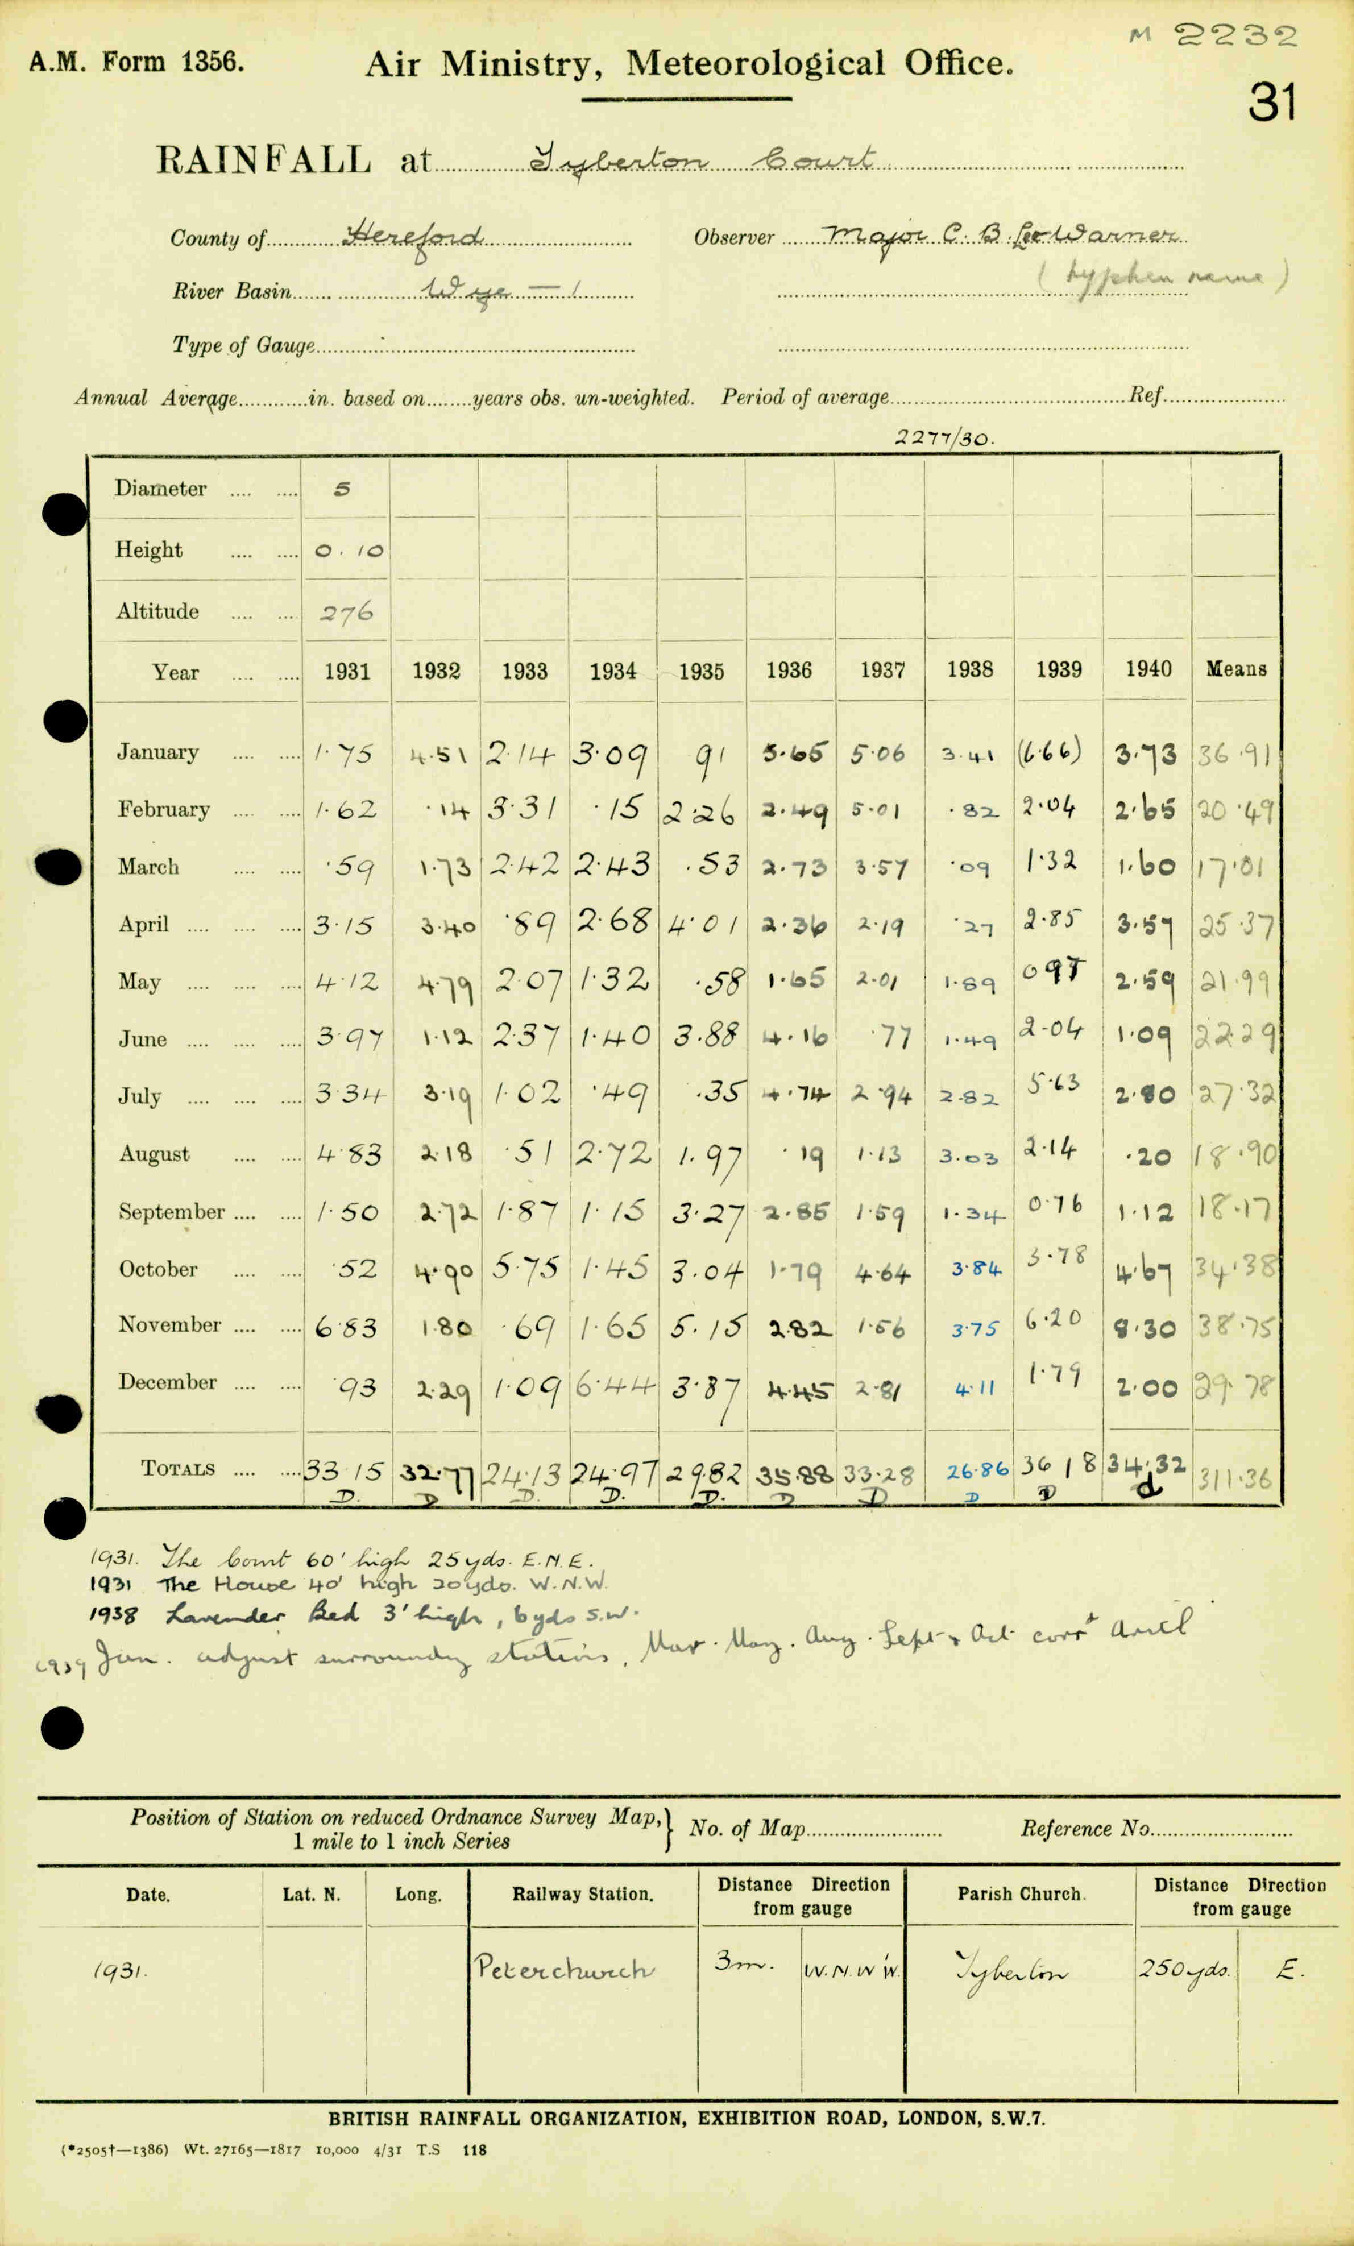 M 2232
A.M. Form 1356. Air Ministry, Meteorological Office.
31
RAINFALL at Tyberton Court
County of Hereford Observer Major C. B. Lee Warner
(hyphen name)
River Basin Wye - 1
Type of Gauge
Annual Average in. based on years obs. un-weighted. Period of average Ref.
2277/30.
Diameter 5
Height 0.10
Altitude 276
Year 1931 1932 1933 1934 1935 1936 1937 1938 1939 1940 Means
January 1.75 4.51 2.14 3.09 91 5.65 5.06 3.41 (6.66) 3.73 36.91
February 1.62 .14 3.31 .15 2.26 2.49 5.01 .82 2.04 2.65 20.49
March .59 1.73 2.42 2.43 .53 2.73 3.57 .09 1.32 1.60 17.01
April 3.15 3.40 .89 2.68 4.01 2.36 2.19 .27 2.85 3.57 25.37
May 4.12 4.79 2.07 1.32 .58 1.65 2.01 1.89 0.97 2.59 21.99
June 3.97 1.12 2.37 1.40 3.88 4.16 .77 1.49 2.04 1.09 22.29
July 3.34 3.19 1.02 .49 .35 4.74 2.94 2.82 5.63 2.80 27.32
August 4.83 2.18 .51 2.72 1.97 .19 1.13 3.03 2.14 .20 18.90
September 1.50 2.72 1.87 1.15 3.27 2.85 1.59 1.34 0.76 1.12 18.17
October .52 4.90 5.75 1.45 3.04 1.79 4.64 3.84 3.78 4.67 34.38
November 6.83 1.80 .69 1.65 5.15 2.82 1.56 3.75 6.20 8.30 38.75
December .93 2.29 1.09 6.44 3.87 4.45 2.81 4.11 1.79 2.00 29.78
TOTALS 33.15 32.77 24.13 24.97 29.82 35.88 33.28 26.86 36.18 34.32 311.36
D. D D. D. D. D D D D d
1931. The Court 60' high 25 yds. E.N.E.
1931 The House 40' high 20 yds. W.N.W.
1938 Lavender Bed 3' high, 6 yds S.W.
1939 Jan. adjust surroundg stations, Mar. May. Aug. Sept & Oct corrd
Position of Station on reduced Ordnance Survey Map, } No. of Map Reference No.
1 mile to 1 inch Series
Date. Lat. N. Long. Railway Station. Distance Direction from gauge Parish Church. Distance Direction from gauge
1931. Peterchurch 3m. W.N.W. Tyberton 250 yds. E.
BRITISH RAINFALL ORGANIZATION, EXHIBITION ROAD, LONDON, S.W.7.
(*2505†—1386) Wt. 27165—1817 10,000 4/31 T.S 118